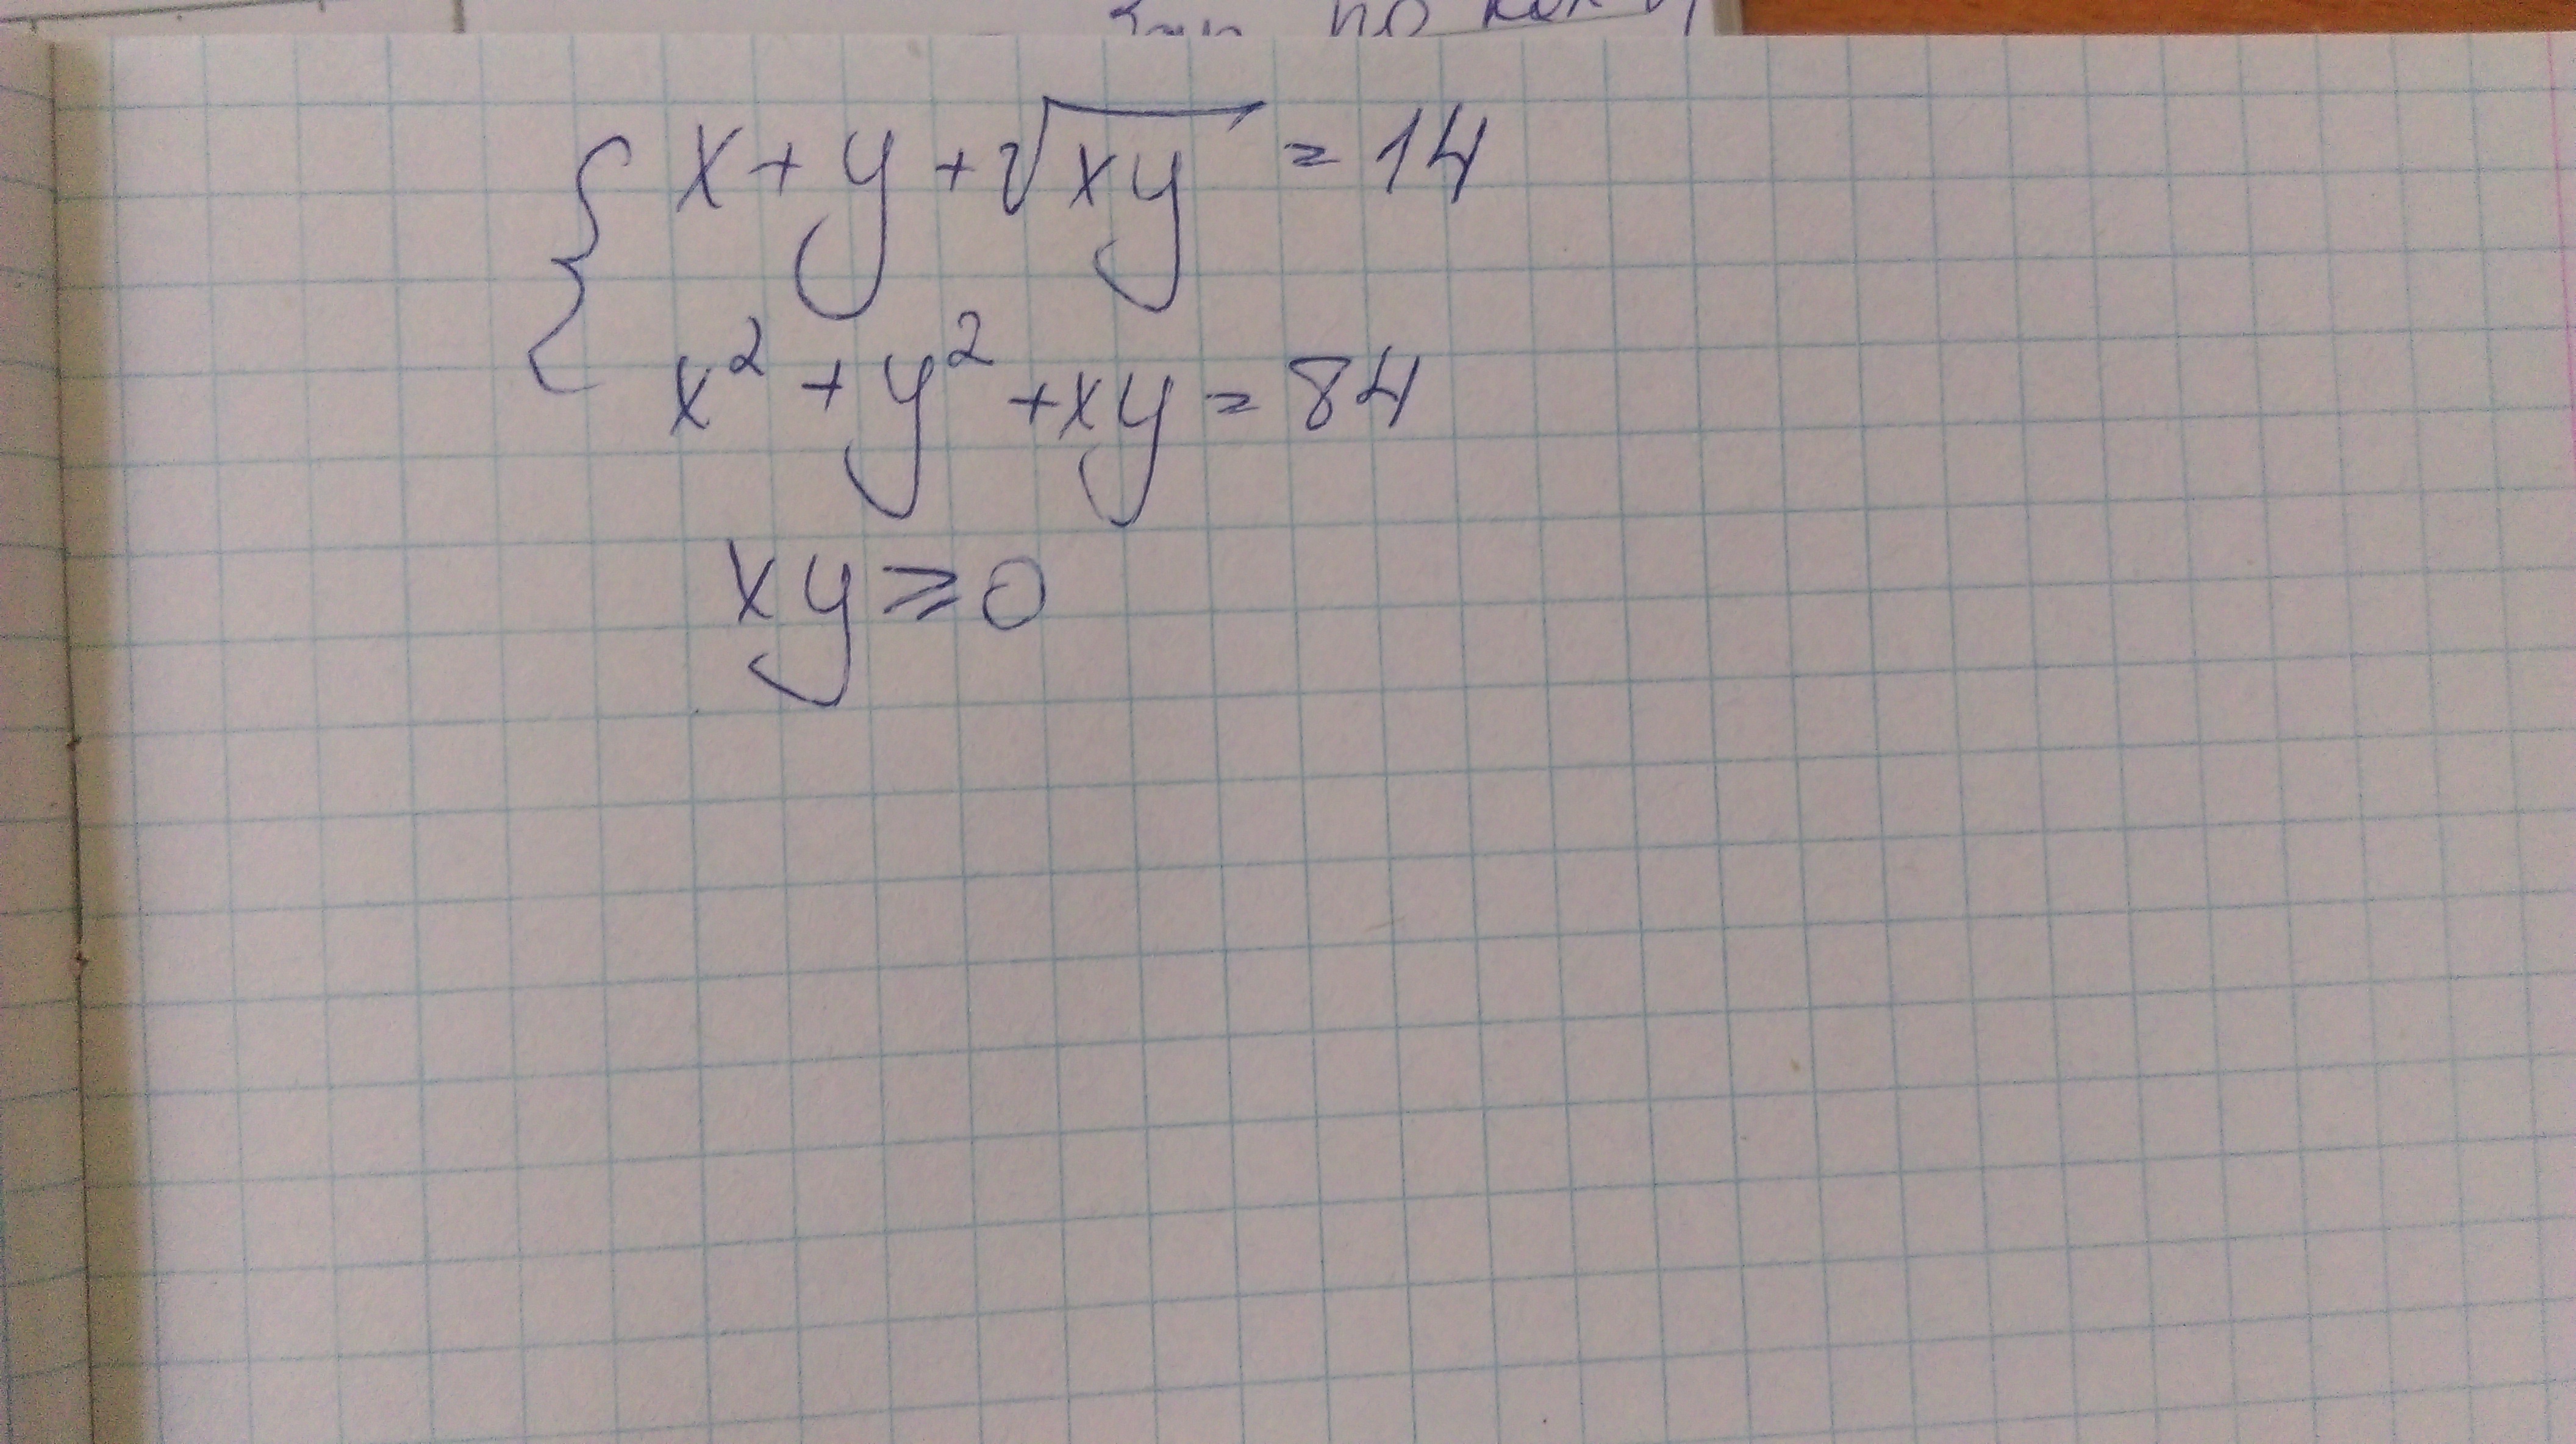 x + y + √xy = 14
x² + y² + xy = 84
xy ⩾ 0